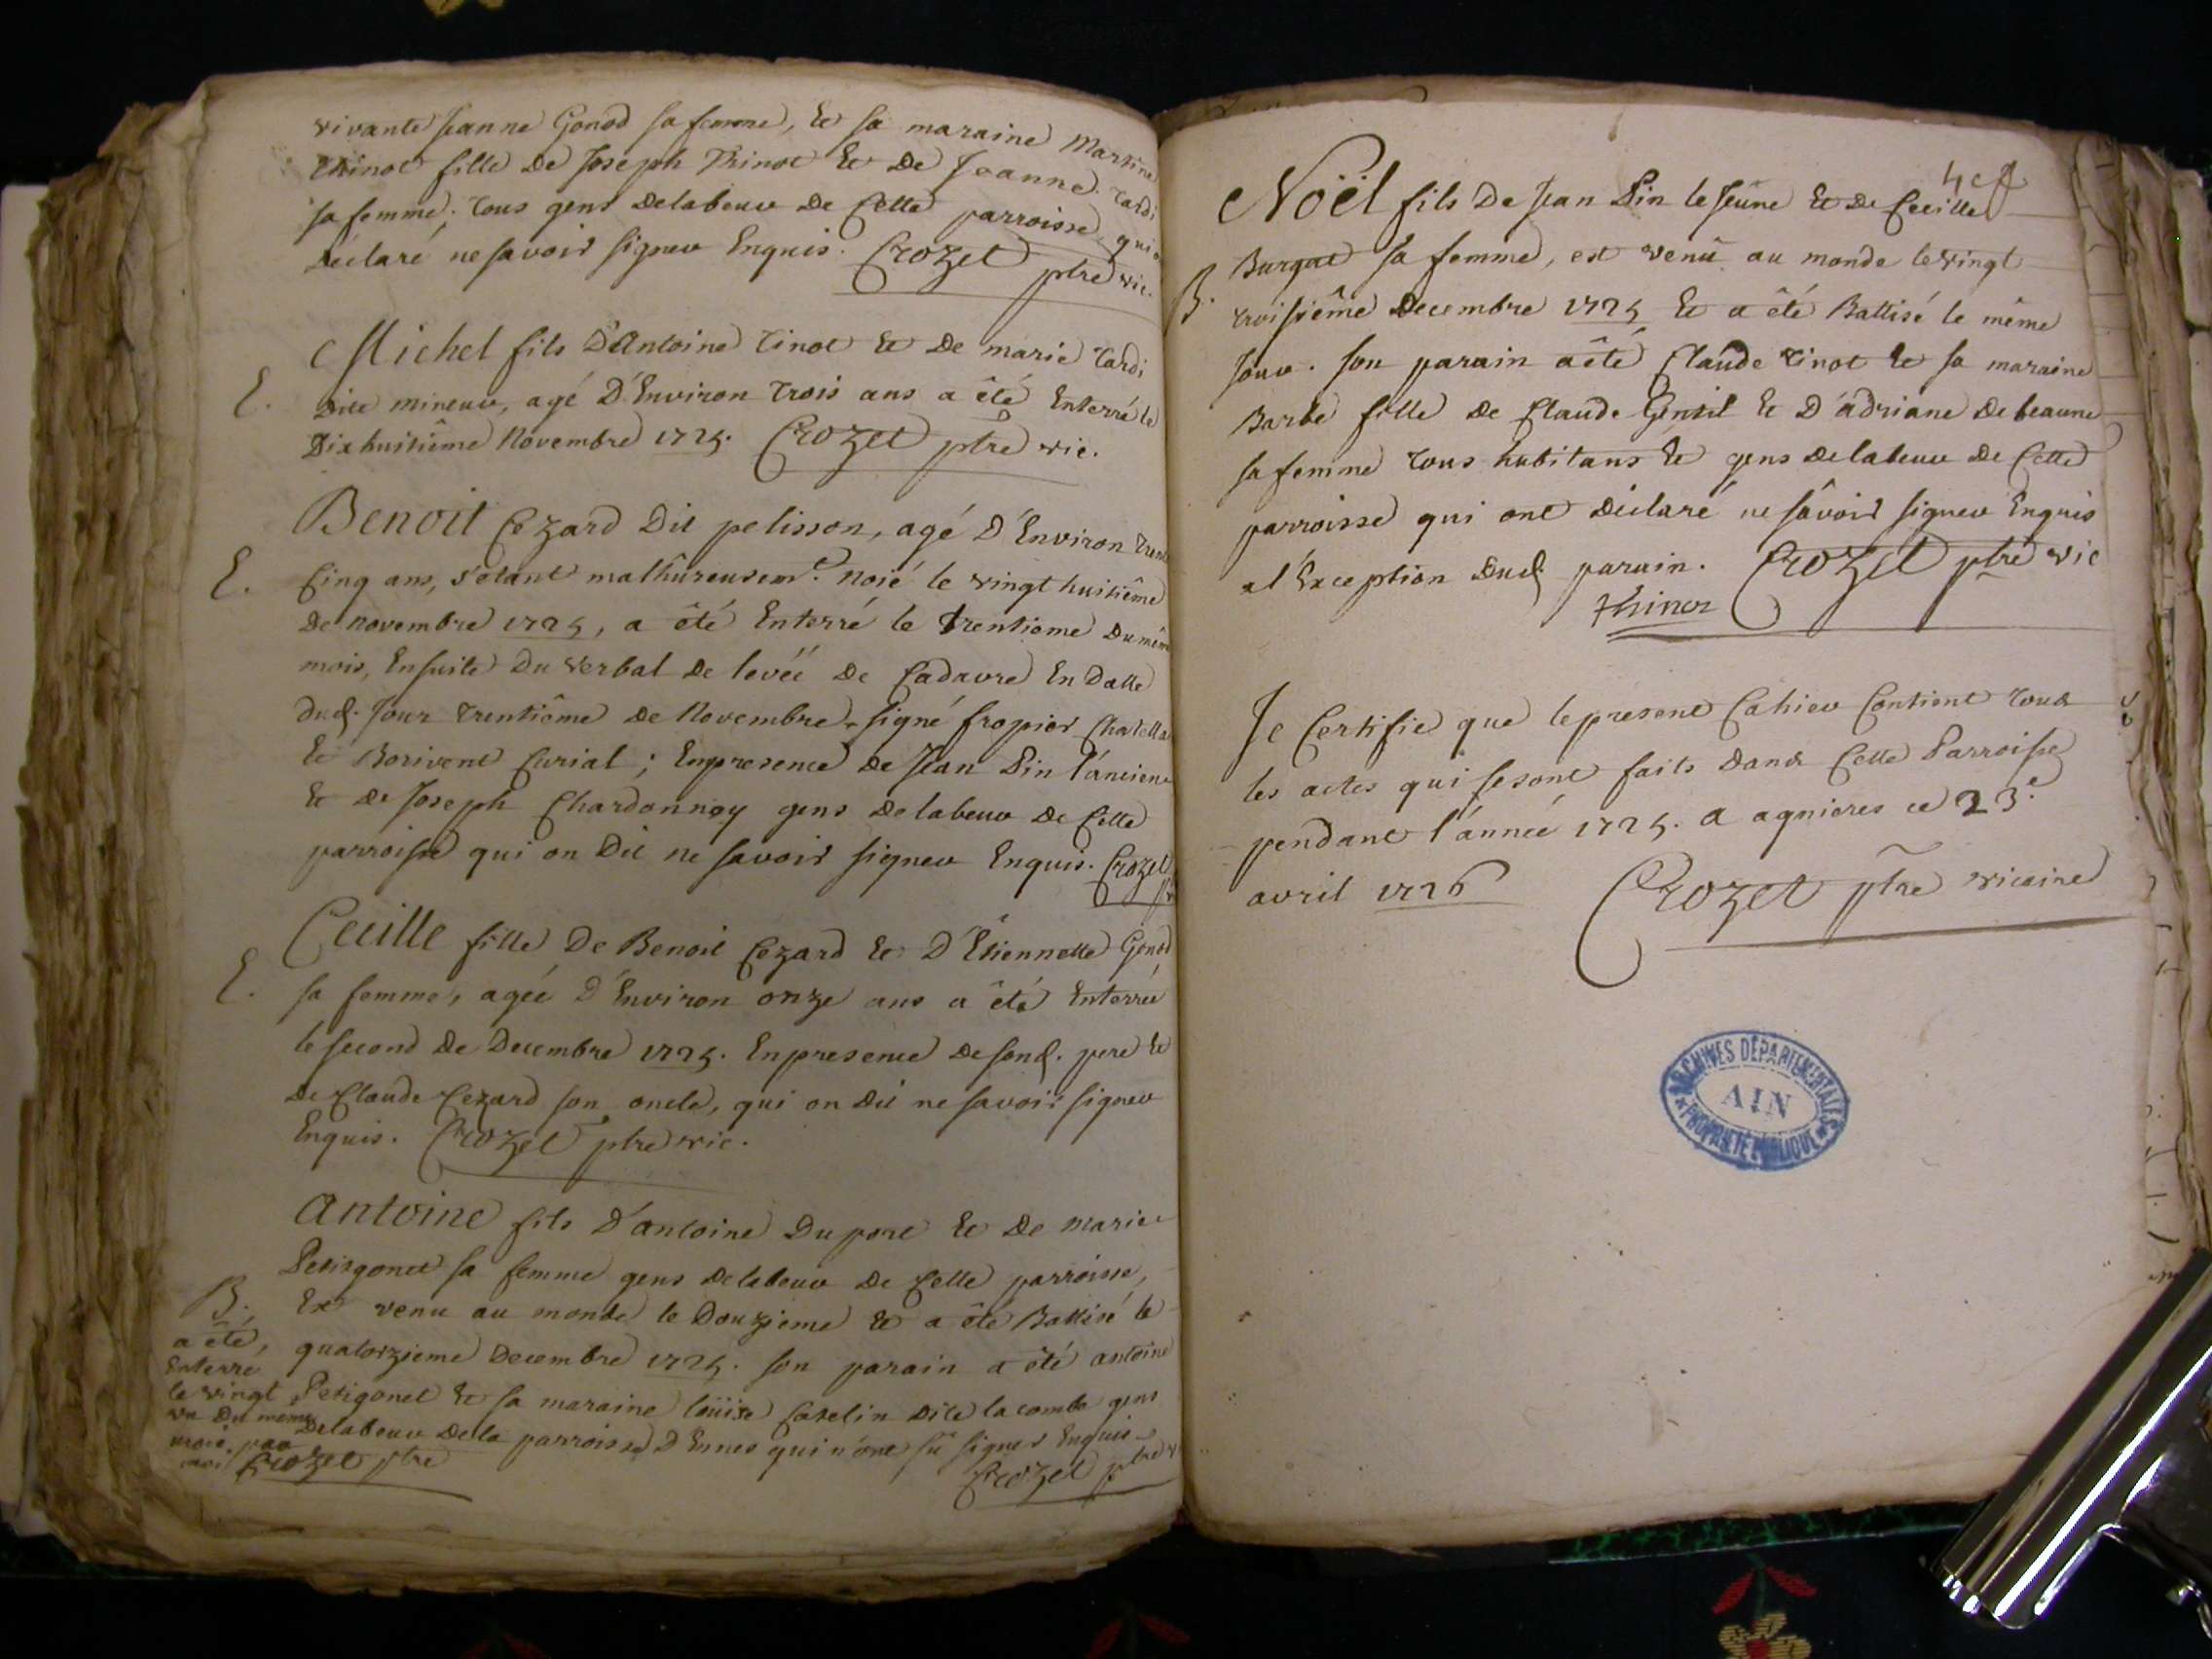 vivante Jeanne Gonod sa femme, Et sa maraine Martine
Thinot fille De Joseph Thinot Et De Jeanne Tardi
sa femme; Tous gens Delabeur De Cette parroisse, qui
déclaré ne savoir signer Enquis. Crozet ptre vic.
Michel fils D'Antoine Tinot Et De marie Tardi
E. Dite mineur, agé D'Environ Trois ans a êté Enterré le
Dixhuitiême Novembre 1725. Crozet ptre vic.
Benoit Cezard Dit pelisson, agé D'Environ
E. Cinq ans, s'etant malhûreusemt. noié le vingt huitiême
De novembre 1725, a êté Enterré le trentiome Du même
mois, Ensuite Du verbal De levéé De Cadavre En Datte
dud. Jour Trentiême De Novembre, signé fropier
Et Borivent Curial; Enpresence De Jean Pin l'ancien
Et De Joseph Chardonnoy gens Delabeur De Cette
parroisse qui on Dit ne savoir signer Enquis. Crozet
Cecille fille De Benoit Cezard Et D'Etiennette Gonod
E. sa femme, agée D'Environ onze ans a êté Enterrée
le second De Decembre 1725. Enpresence De sond. pere Et
De Claude Cezard son oncle, qui on Dit ne savoir signer
Enquis. Crozet ptre vic.
Antoine fils D'antoine Duport Et De marie
Petitgonet sa femme gens Delabeur De Cette parroisse,
B. Est venu au monde le Douzieme Et a êté Battisé le
quatorzieme Decembre 1725. son parain a êté antoine
Petigonet Et sa maraine loüise Catelin Dite la combe gens
Delabeur Dela parroisse D'Ennes qui n'ont sû signer Enquis
Crozet ptre
a êté,
Enterré
le vingt
un Du meme
mois. par
moi Crozet ptre
Noël fils De Jean Pin le Jeûne Et De Cecille
Burgat sa femme, est venû au monde levingt
B. troisiême Decembre 1725 Et a êté Battisé le même
Jour. son parain aêté Claude Tinot Et sa maraine
Barbe fille De Claude Gentil Et D'adriane Debeaune
sa femme Tous habitans Et gens Delabeur De Cette
parroisse qui ont déclaré ne sâvoir signer Enquis
al'Exception Dud. parain. Crozet ptre vic
Thinoz
Je Certifie que lepresent Cahier Contient Tous
les actes qui sesont faits Dans Cette Parroisse
pendant l'année 1725. a agnieres ce 23e.
avril 1726 Crozet ptre vicaire
ARCHIVES DÉPARTEMENTALES
AIN
PROPRIÉTÉ PUBLIQUE